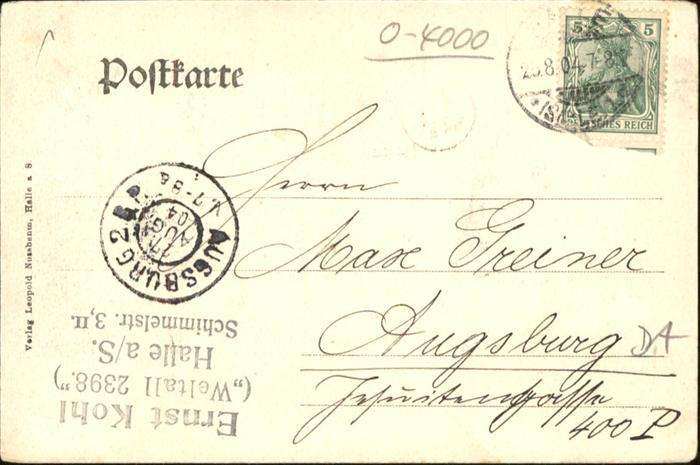 O-4000
Postkarte
5 5
DEUTSCHES REICH
8.04.7-8
AUGSBURG 2 B.P.
AUG
04
V.7-8
Herrn
Max Greiner
Augsburg
DA
Jesuitengasse
400 P
Verlag Leopold Nussbaum, Halle a S
Ernst Kohl
(„Weltall 2398.")
Halle a/S.
Schimmelstr. 3,II.